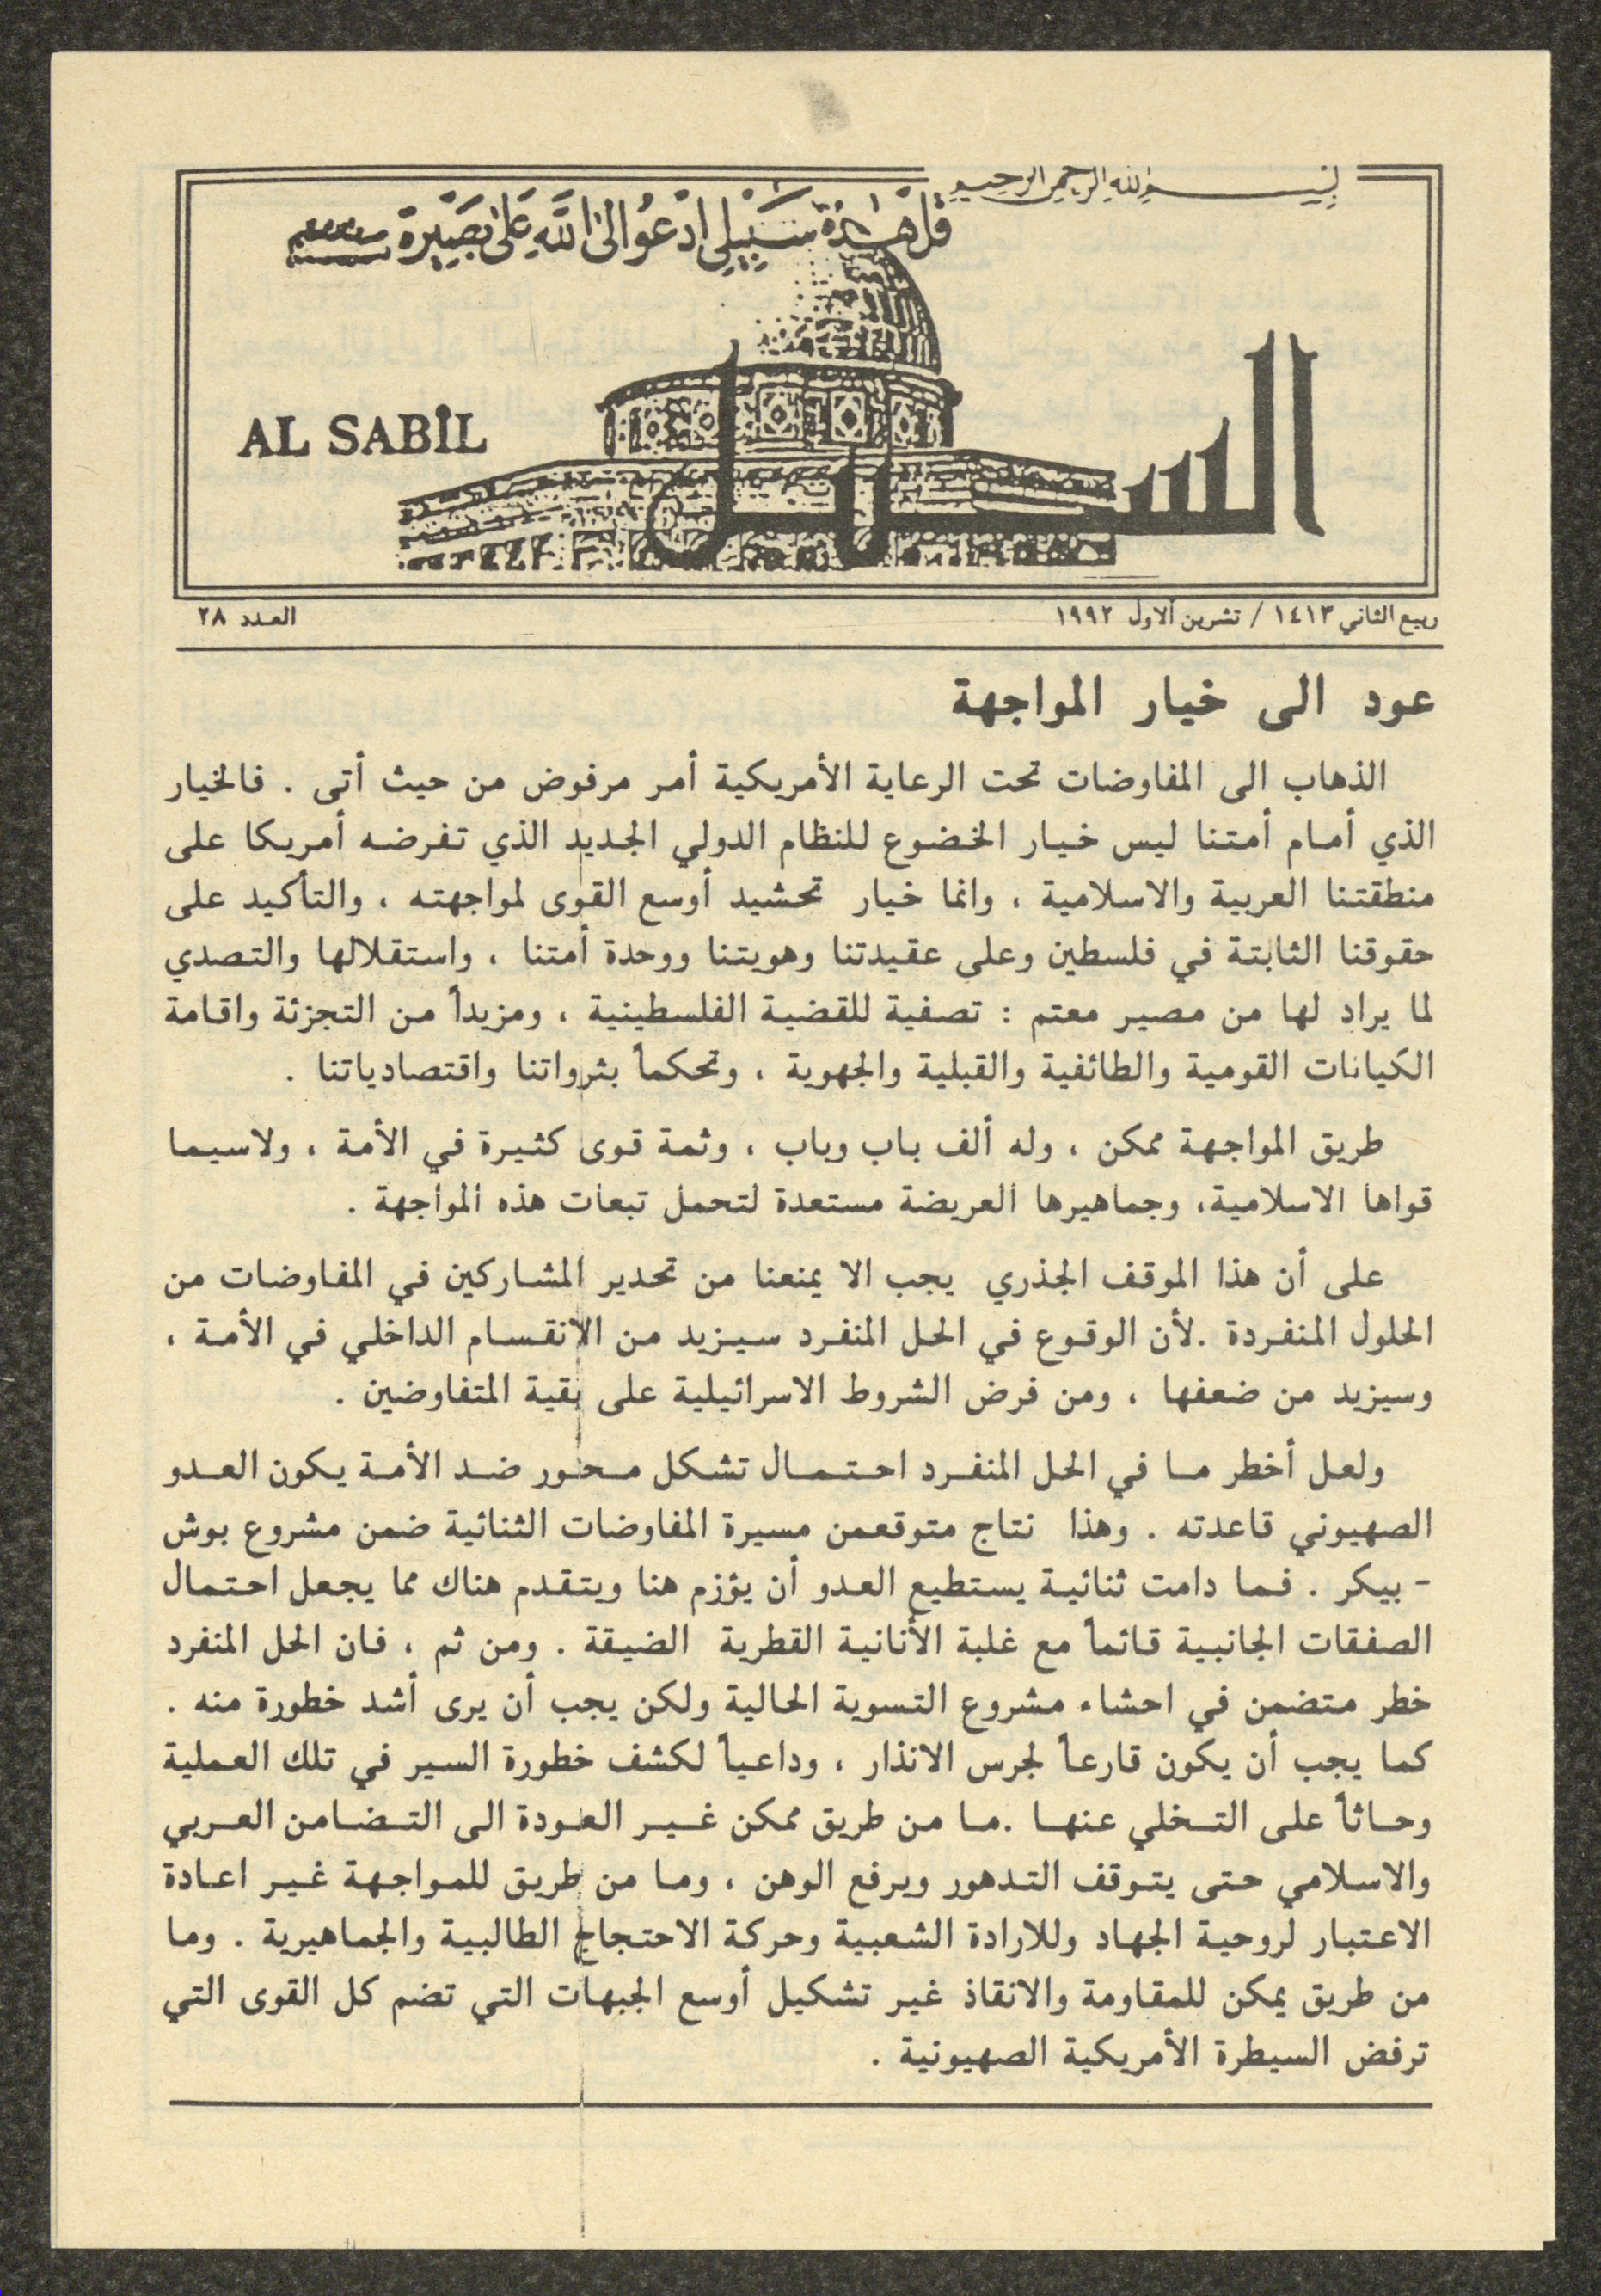 بسم الله الرحمن الرحيم
قُلْ هَٰذِهِ سَبِيلِي أَدْعُو إِلَى اللَّهِ عَلَىٰ بَصِيرَةٍ
السبيل
AL SABİL
ربيع الثاني ١٤١٣ / تشرين الاول ١٩٩٢
العدد ٢٨
عود الى خيار المواجهة
الذهاب الى المفاوضات تحت الرعاية الأمريكية أمر مرفوض من حيث أتى . فالخيار
الذي أمام أمتنا ليس خيار الخضوع للنظام الدولي الجديد الذي تفرضه أمريكا على
منطقتنا العربية والاسلامية ، وانما خيار تحشيد أوسع القوى لمواجهته ، والتأكيد على
حقوقنا الثابتة في فلسطين وعلى عقيدتنا وهويتنا ووحدة أمتنا ، واستقلالها والتصدي
لما يراد لها من مصير معتم : تصفية للقضية الفلسطينية ، ومزيداً من التجزئة واقامة
الكيانات القومية والطائفية والقبلية والجهوية ، وتحكماً بثرواتنا واقتصادياتنا .
طريق المواجهة ممكن ، وله ألف باب وباب ، وثمة قوى كثيرة في الأمة ، ولاسيما
قواها الاسلامية، وجماهيرها العريضة مستعدة لتحمل تبعات هذه المواجهة .
على أن هذا الموقف الجذري يجب الا يمنعنا من تحدير المشاركين في المفاوضات من
الحلول المنفردة .لأن الوقوع في الحل المنفرد سيزيد من الانقسام الداخلي في الأمة ،
وسيزيد من ضعفها ، ومن فرض الشروط الاسرائيلية على بقية المتفاوضين .
ولعل أخطر ما في الحل المنفرد احتمال تشكل محور ضد الأمة يكون العدو
الصهيوني قاعدته . وهذا نتاج متوقعمن مسيرة المفاوضات الثنائية ضمن مشروع بوش
- بيكر . فما دامت ثنائية يستطيع العدو أن يؤزم هنا ويتقدم هناك مما يجعل احتمال
الصفقات الجانبية قائماً مع غلبة الأنانية القطرية الضيقة . ومن ثم ، فان الحل المنفرد
خطر متضمن في احشاء مشروع التسوية الحالية ولكن يجب أن يرى أشد خطورة منه .
كما يجب أن يكون قارعاً لجرس الانذار ، وداعياً لكشف خطورة السير في تلك العملية
وحاثاً على التخلي عنها .ما من طريق ممكن غير العودة الى التضامن العربي
والاسلامي حتى يتوقف التدهور ويرفع الوهن ، وما من طريق للمواجهة غير اعادة
الاعتبار لروحية الجهاد وللارادة الشعبية وحركة الاحتجاج الطالبية والجماهيرية . وما
من طريق يمكن للمقاومة والانقاذ غير تشكيل أوسع الجبهات التي تضم كل القوى التي
ترفض السيطرة الأمريكية الصهيونية .